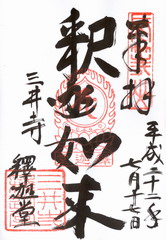 奉拝
平成二十一年
七月十七日
釈迦如来
三井寺
釋迦堂